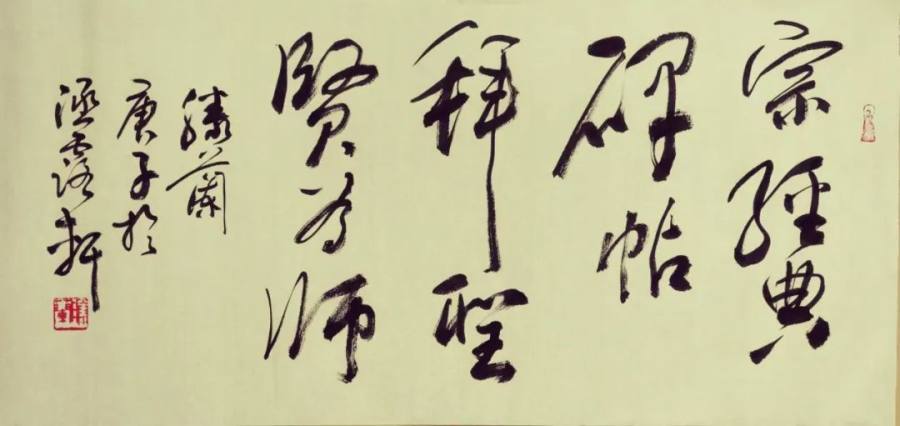 宗經典
碑帖
拜聖
賢為師
滕蘭
庚子於
涵露軒